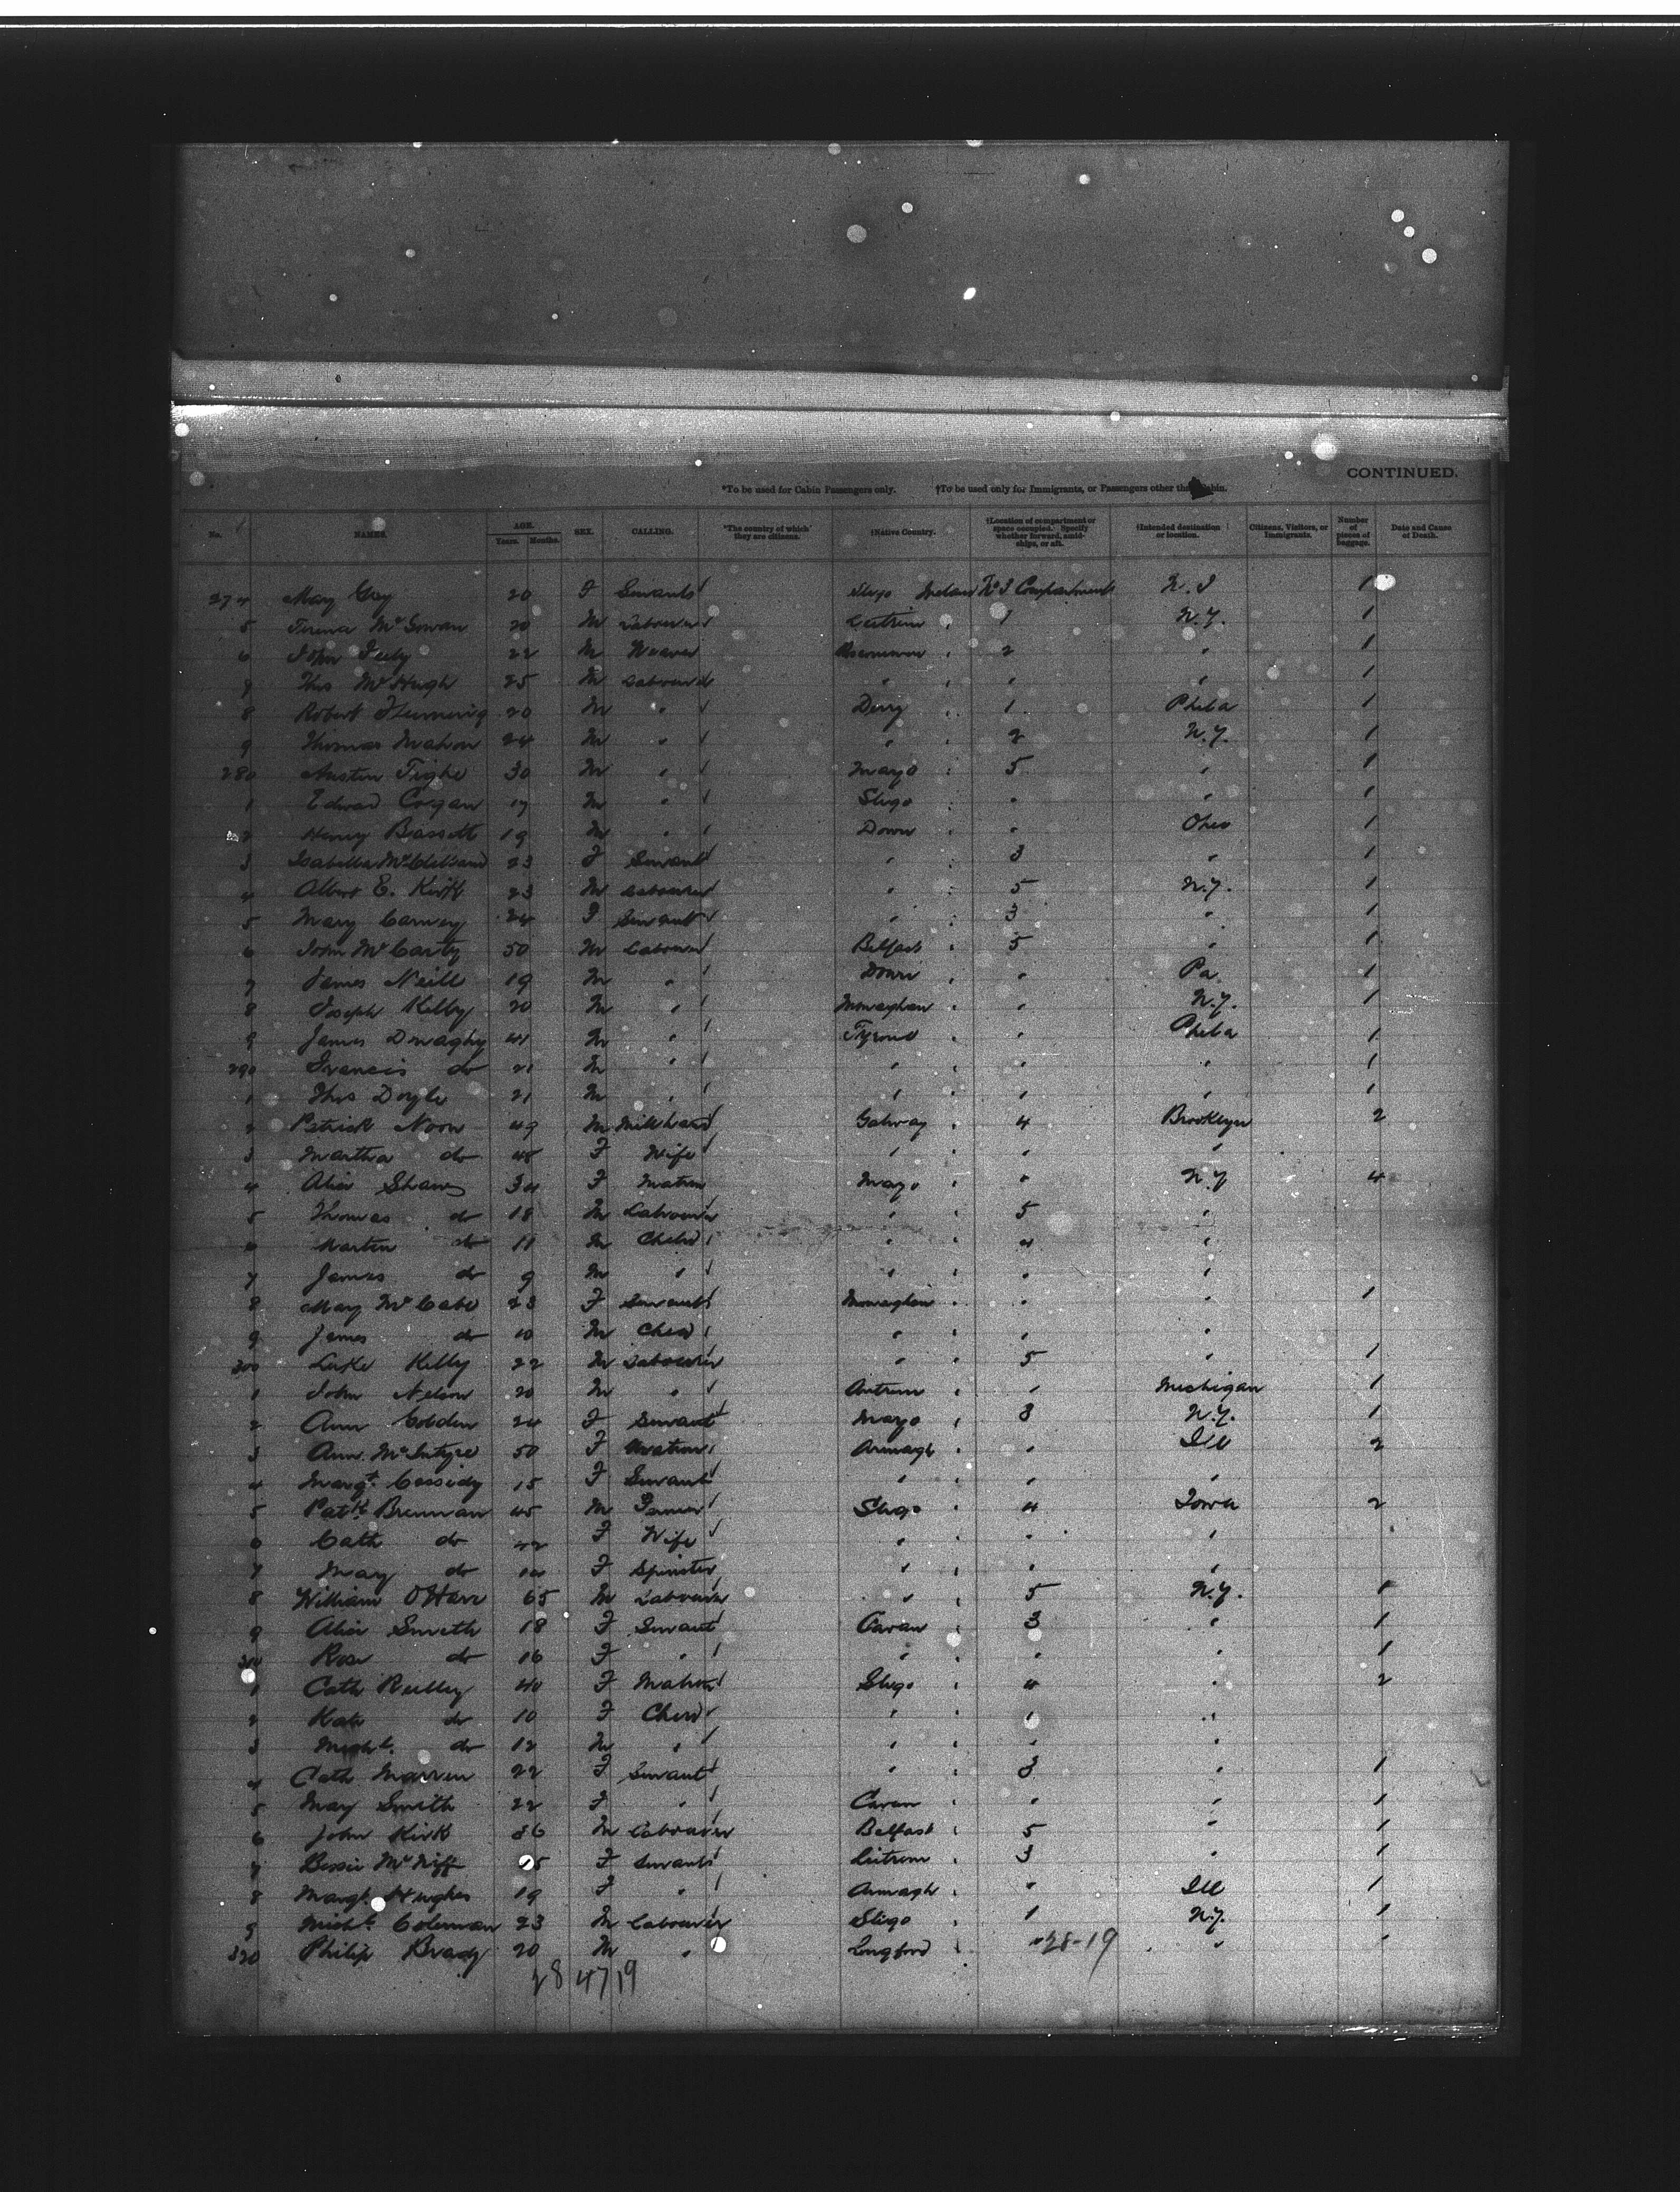 CONTINUED.
*To be used for Cabin Passengers only. †To be used only for Immigrants, or Passengers other than Cabin.
No. NAMES. AGE. Years. Months. SEX. CALLING. *The country of which they are citizens. †Native Country. †Location of compartment or space occupied. Specify whether forward, amidships, or aft. †Intended destination or location. Citizens, Visitors, or Immigrants. Number of pieces of baggage. Date and Cause of Death.
274 May 20 F Servant Sligo Ireland No 3 Compartment N.J 1
5 Terence McGowan 20 M Labourer Leitrim " 1 N.Y. 1
6 John Feely 22 M Weaver Roscommon " 2 " 1
7 Thos McHugh 25 M Labourer " " " " 1
8 Robert Fleming 20 M " Derry " 1 Phila 1
9 Thomas Mahon 24 M " " 2 N.Y. 1
280 Austin Tighe 30 M " Mayo " 5 " 1
1 Edward Cogan 19 M " Sligo " " " 1
2 Henry Bassett 19 M " Down " " Ohio 1
3 Isabella McClelland 23 F Servant " " 3 " 1
4 Albert E. Kirk 23 M Labourer " " 5 N.Y. 1
5 Mary Carney 24 F Servant " " 3 " 1
6 John McCarty 50 M Labourer Belfast " 5 " 1
7 James Neill 19 M " Down " " Pa 1
8 Joseph Kelly 20 M " Monaghan " " N.Y. 1
9 James Donaghy 41 M " Tyrone " " Phila 1
290 Francis do 21 M " " " " 1
1 Thos Doyle 21 M " " " " " 1
2 Patrick Noon 49 M Millhand Galway " 4 Brooklyn 2
3 Martha do 48 F Wife " " " "
4 Alice Shaw 34 F Matron Mayo " " N.Y 4
5 Thomas do 18 M Labourer " " 5 "
6 Martin do 11 M Child " " 4 "
7 James do 9 M " " " " "
8 May McCabe 23 F Servant Monaghan " " " 1
9 James do 10 M Child " " " "
300 Luke Kelly 22 M Labourer " " 5 " 1
1 John Nelson 20 M " Antrim " " Michigan 1
2 Ann Golden 24 F Servant Mayo " 3 N.Y. 1
3 Ann McIntyre 50 F Matron Armagh " " Ill 2
4 Margt. Cassidy 15 F Servant " " " "
5 Patk. Brennan 45 M Farmer Sligo " 4 Iowa 2
6 Cath do 42 F Wife " " " "
7 May do F Spinster " " " "
8 William OHara 65 M Labourer " " 5 N.Y. 1
9 Alice Smith 18 F Servant Cavan " 3 " 1
310 Rose do 16 F " " " " " 1
1 Cath Reilly 40 F Matron Sligo " 4 " 2
2 Kate do 10 F Child " " " "
3 Michl. do 12 M " " " " "
4 Cath Marren 22 F Servant " " 3 " 1
5 May Smith 22 F " Cavan " " " 1
6 John Kirk 36 M Labourer Belfast " 5 " 1
7 Bessie McNiff F Servant Leitrim " 3 " 1
8 Margt. Hughes 19 F " Armagh " " Ill 1
9 Michl. Coleman 23 M Labourer Sligo " 1 N.Y. 1
320 Philip Brady 20 M " Longford " " 28-19 " "
28 47 19